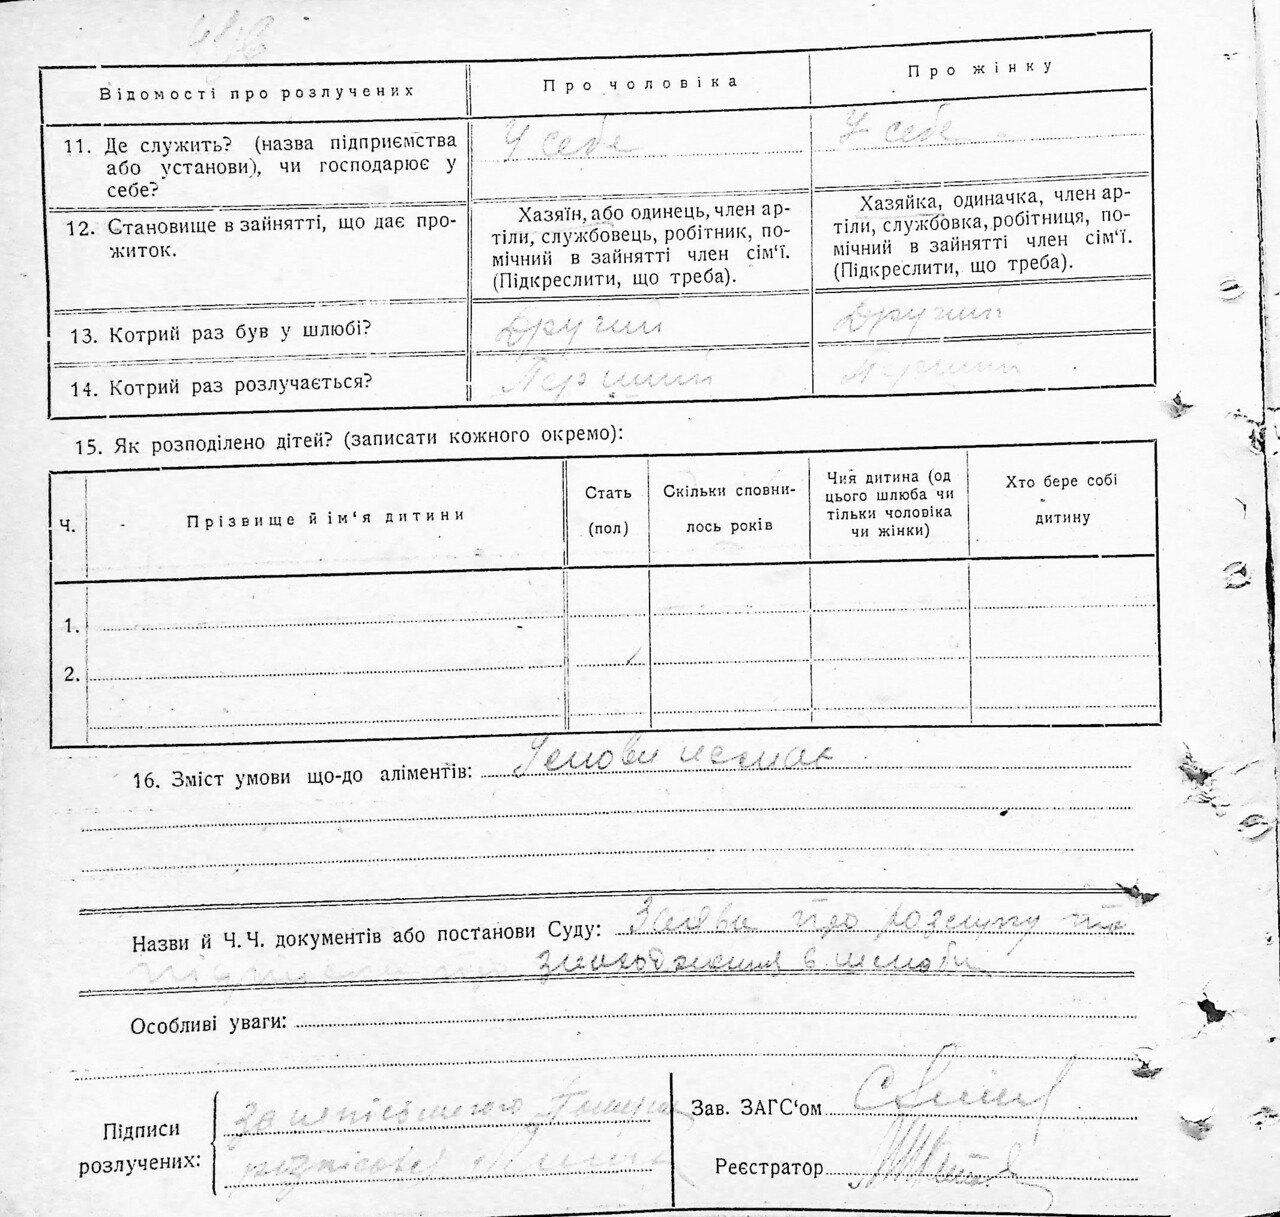 Відомості про розлучених
Про чоловіка
Про жінку
11. Де служить? (назва підприємства
або установи), чи господарює у
себе?
У себе
У себе
12. Становище в зайнятті, що дає про-
житок.
Хазяїн, або одинець, член ар-
тіли, службовець, робітник, по-
мічний в зайнятті член сім‘ї.
(Підкреслити, що треба).
Хазяйка, одиначка, член ар-
тіли, службовка, робітниця, по-
мічний в зайнятті член сім‘ї.
(Підкреслити, що треба).
13. Котрий раз був у шлюбі?
Другий
Другий
14. Котрий раз розлучається?
Перший
Перший
15. Як розподілено дітей? (записати кожного окремо):
Ч.
Прізвище й ім‘я дитини
Стать
(пол)
Скільки сповни-
лось років
Чия дитина (од
цього шлюба чи
тільки чоловіка
чи жінки)
Хто бере собі
дитину
1.
2.
16. Зміст умови що-до аліментів: Умови немає
Назви й Ч.Ч. документів або постанови Суду: Заява про розлуку та
в шлюбі
Особливі уваги:
Підписи
розлучених:
За неписьменого
розписався
Зав. ЗАГС‘ом
Реєстратор